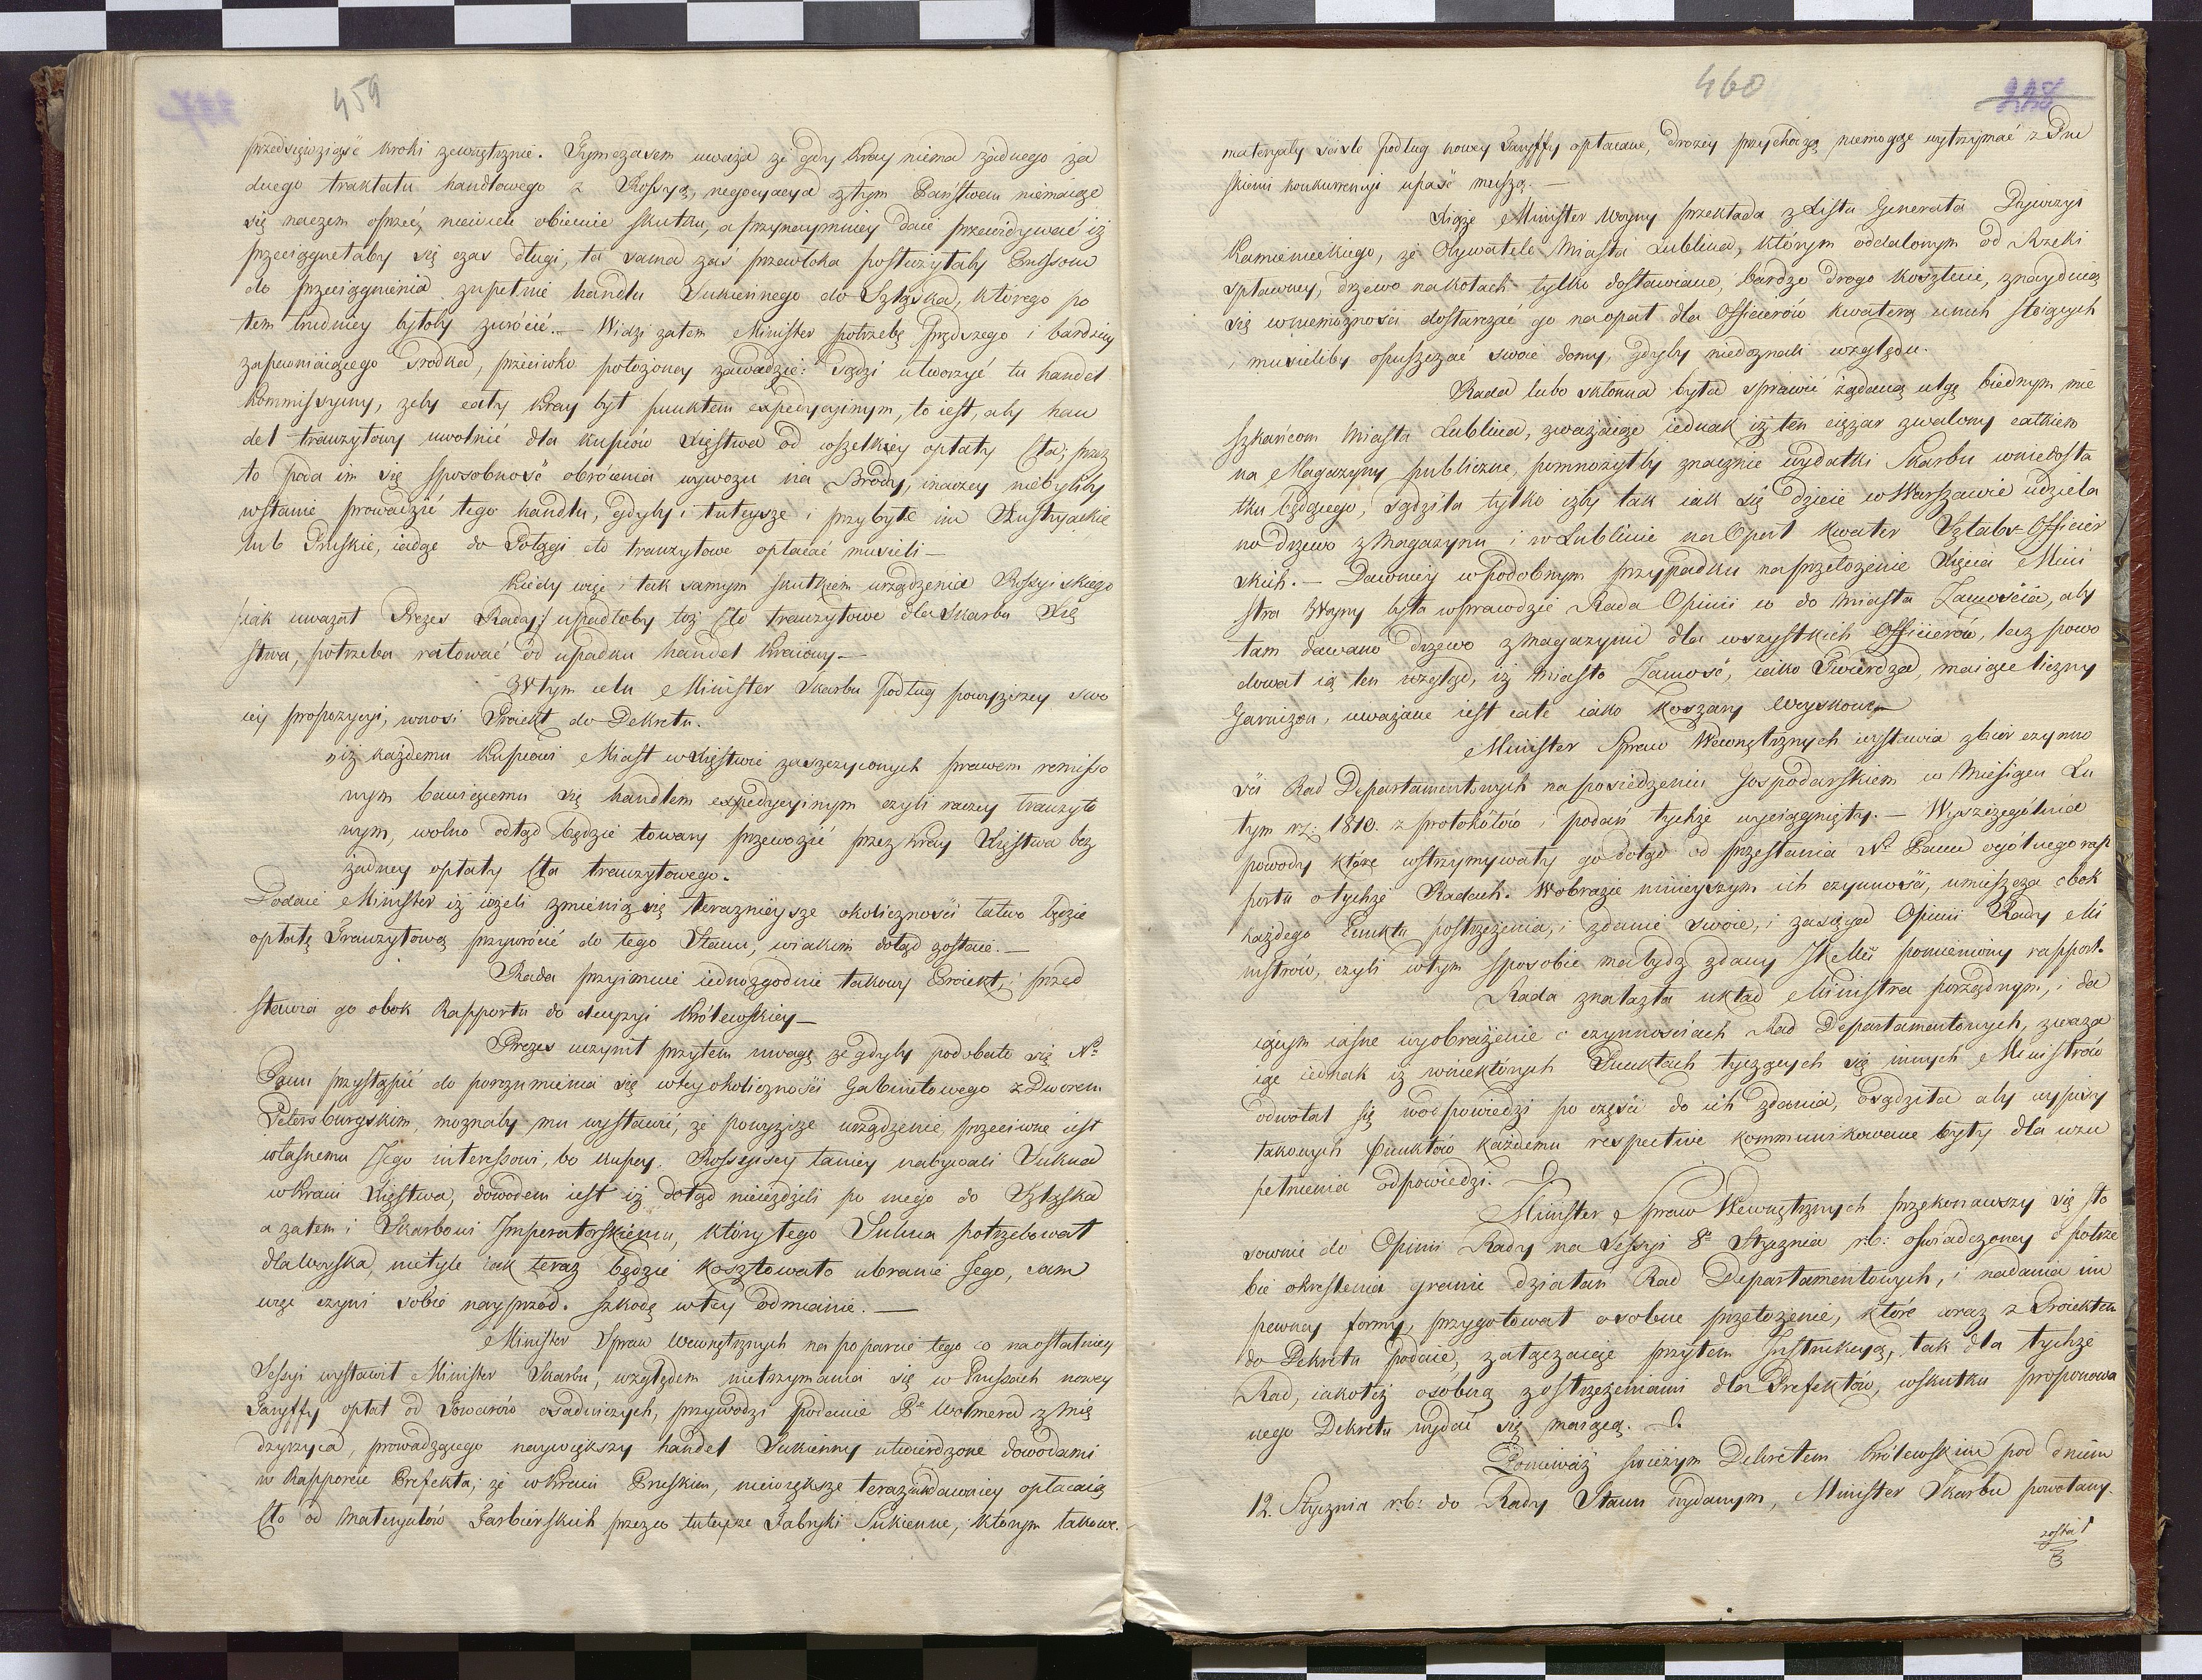 459
przedsięwziąść kroki zewnętrznie. Tymczasem uważa że gdy kray niema żadnego ża
dnego traktatu handlowego z Rossyą, negocyacya z tym Państwem niemaiąc
się naczem oprzeć, niewiele obiecuie skutku, a przynaymniey daie przewidywać iż
przeciągnęłaby się czas długi, ta sama zaś przewłoka posłużyłaby Prussom
do przeciągnienia zupełnie handlu Sukiennego do Szląska, którego po
tem trudniey byłoby zwrócić. — Widzi zatem Minister potrzebę prędszego i bardziey
zapewniaiącego środka, przeciwko położoney zawadzie: Sądzi utworzyć tu handel
Kommissyiny, żeby cały kray był punktem expedycyinym, to iest, aby han
del tranzytowy uwolnić dla kupców Xięstwa od wszelkiey opłaty Cła; przez
to poda im się sposobność obrócenia wywozu na Brody, inaczey niebyliby
wstanie prowadzić tego handlu, gdyby i tuteysze i przybyłe im Austryackie
lub Pruskie, iadąc do Połągi cło tranzytowe opłacać musieli —
Kiedy więc i tak samym skutkiem urządzenia Rossyiskiego
/:iak uważał Prezes Rady:/ upadłoby toż Cło tranzytowe dla Skarbu Xię
stwa, potrzeba ratować od upadku handel kraiowy. —
W tym celu Minister Skarbu podług powyższey swo
iey propozycyi, wnosi Proiekt do Dekretu.
„iż każdemu Kupcowi Miast w Xięstwie zaszczyconych prawem remisso
wym bawiącemu się handlem expedycyinym czyli raczey tranzyto
wym, wolno odtąd będzie towary przewozić przez kray Xięstwa bez
żadney opłaty Cła tranzytowego.
Dodaie Minister iż ieżeli zmienią się teraznieysze okoliczności łatwo będzie
opłatę Tranzytową przywrócić do tego Stanu, w iakim dotąd zostaie. —
Rada przyimuie iednozgodnie takowy Proiekt, i przed
stawia go obok Rapportu do decyzyi Królewskiey —
Prezes uczynił przytem uwagę że gdyby podobało się N:
Panu przystąpić do porozumienia się w tey okoliczności Gabinetowego z Dworem
Petersburgskim, możnaby mu wystawić, że powyższe urządzenie, przeciwne iest
własnemu Jego interessowi, bo kupcy Rossyiscy taniey nabywali Sukna
w kraiu Xięstwa, dowodem iest iż dotąd nieieździli po niego do Szląska
a zatem i Skarbowi Imperatorskiemu, który tego Sukna potrzebował
dla Woyska, nietyle iak teraz będzie kosztowało ubranie Jego, sam
więc czyni sobie nayprzód szkodę w tey odmianie. —
Minister Spraw Wewnętrznych na poparcie tego co na ostatniey
Sessyi wystawił Minister Skarbu, względem nietrzymania się w Prussach nowey
Taryffy opłat od Towarów osadniczych, przywodzi podanie Pa Wolmera z Mię
dzyrzycza, prowadzącego naywiększy handel Sukienny utwierdzone dowodami
w Rapporcie Prefekta; że w kraiu Pruskim, niewiększe teraz iak dawniey opłacaią
Cło od Materyałów Farbierskich przezco tuteysze Fabryki Sukienne, którym takowe
460
228
materyały ściśle podług nowey Taryffy opłacane, drożey przychodzą, niemogąc wytrzymać z Pru
skiemi konkurrencyi upaść muszą. —
Xiąże Minister Woyny przekłada z Listu Generała Dywizyi
Kamienieckiego, że Obywatele Miasta Lublina, którym oddalonym od Rzeki
spławney, drzewo na kołach tylko dostawiane, bardzo drogo kosztuie, znayduią
się w niemożności dostarczać go na opał dla Officierów kwaterą u nich stoiących
i musieliby opuszczać swoie domy, gdyby niedoznali względu.
Rada lubo skłonna była sprawić żądaną ulgę biednym mie
szkańcom Miasta Lublina, zważaiąc iednak iż ten ciężar zwalony całkiem
na Magazyny publiczne, pomnożyłby znacznie wydatki Skarbu w niedosta
tku będącego, sądziła tylko iżby tak iak się dzieie w Warszawie udziela
no drzewo z Magazynu i w Lublinie na Opał kwater Sztabs-Officier
skich. — Dawniey w podobnym przypadku na przełożenie Xięcia Mini
stra Woyny była wprawdzie Rada Opinii co do Miasta Zamościa, aby
tam dawano drzewo z Magazynu dla wszystkich Officierów, lecz powo
dował ią ten wzgląd, iż Miasto Zamość, iako Twierdza, maiące liczny
Garnizon, uważane iest całe iako Koszary Woyskowe
Minister Spraw Wewnętrznych wystawia zbiór czynno
ści Rad Departamentowych na posiedzeniu Gospodarskiem w Miesiącu Lu
tym r: 1810. z protokółów i podań tychże wyciągnięty. — Wyszczególnia
powody które wstrzymywały go dotąd od przesłania N. Panu ogólnego rap
portu o tychże Radach. W obrazie ninieyszym ich czynności, umieszcza obok
każdego Punktu postrzeżenia, i zdanie swoie, i zasięga Opinii Rady Mi
nistrów, czyli w tym sposobie ma bydź zdany JKMci pomieniony rapport.
Rada znalazła układ Ministra porządnym, i da
iącym iasne wyobrażenie o czynnościach Rad Departamentowych, zważa
iąc iednak iż w niektórych Punktach tyczących się innych Ministrów
odwołał się w odpowiedzi po części do ich zdania, osądziła aby wypisy
takowych punktów każdemu respective kommunikowane były dla uzu
pełnienia odpowiedzi.
Minister Spraw Wewnętrznych przekonawszy się sto
sownie do Opinii Rady na Sessyi 8o Stycznia r.b: oświadczoney o potrze
bie określenia granic działań Rad Departamentowych, i nadania im
pewney formy, przygotował osobne przełożenie, które wraz z Proiektem
do Dekretu podaie, załączaiąc przytem Instrukcyą, tak dla tychże
Rad, iakoteż osobną z ostrzeżeniami dla Prefektów, w skutku proponowa
nego Dekretu wydać się maiącą.
Ponieważ świeżym Dekretem Królewskim pod dniem
12. Stycznia r.b: do Rady Stanu wydanym, Minister Skarbu powołany
został